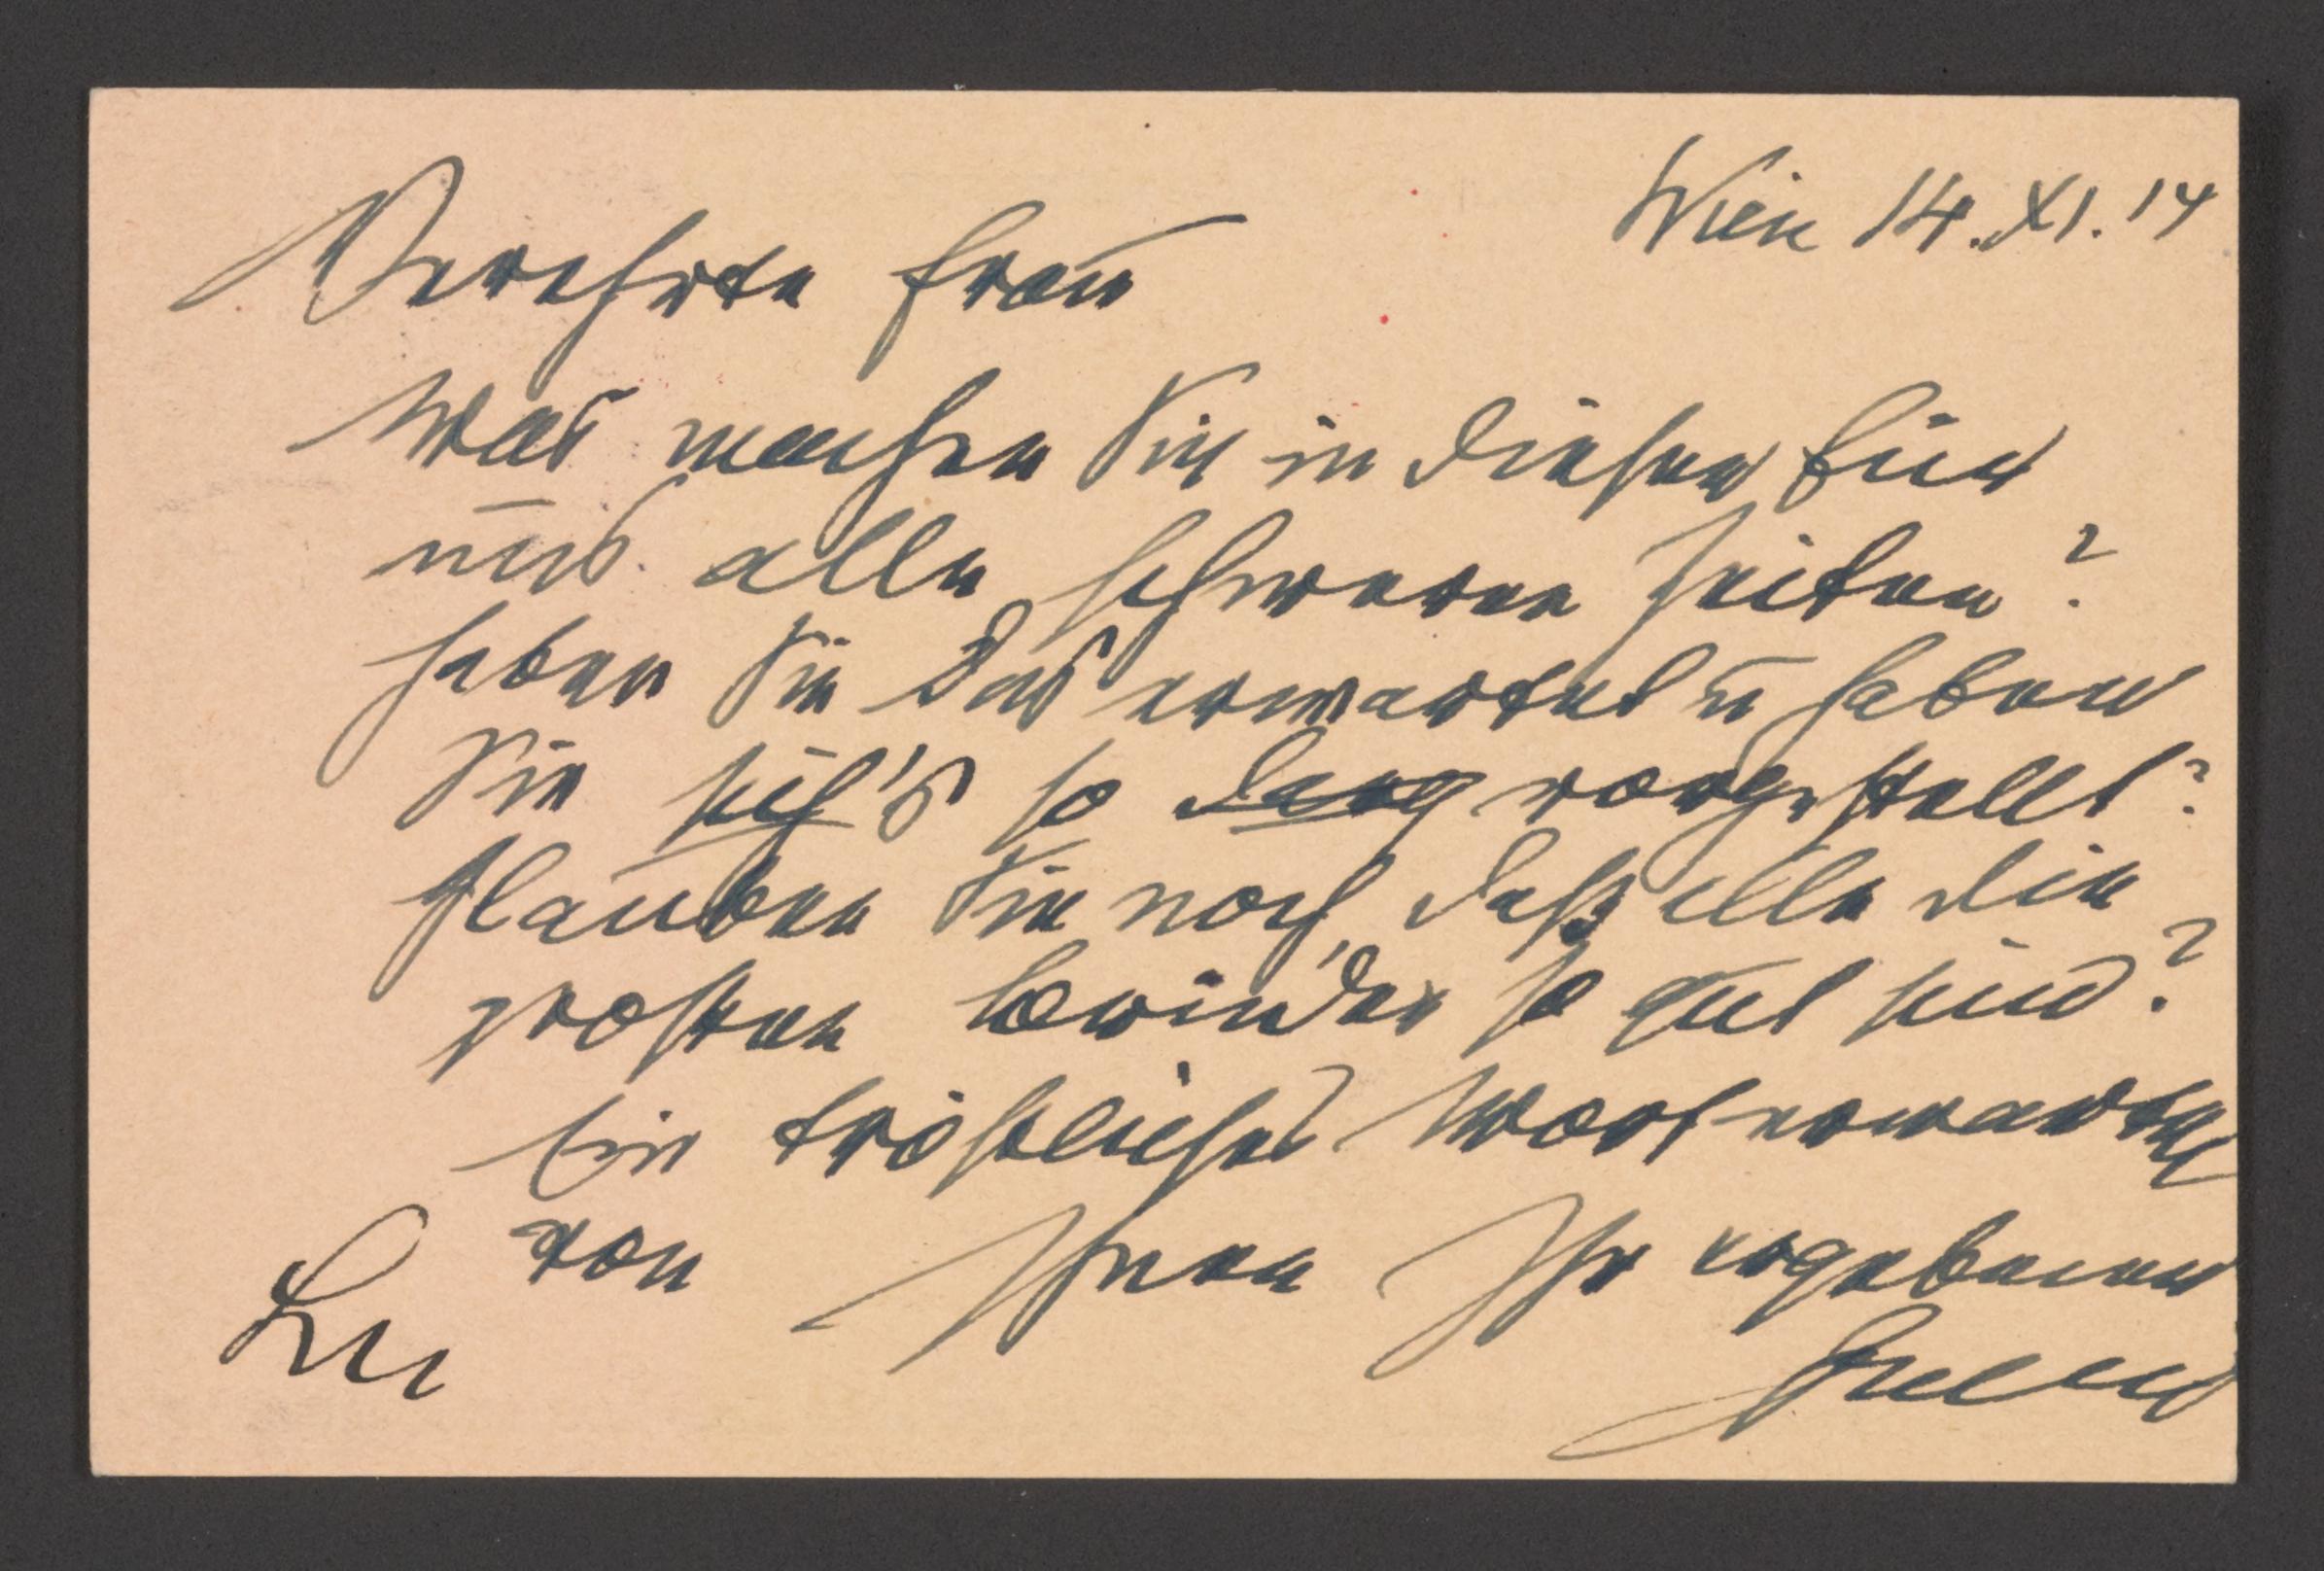 Wien 14.XI.14
Verehrte Frau
Was machen Sie in diesen für
uns alle schweren Zeiten?
Haben Sie das erwartet u haben
Sie sich's so vorgestellt?
Glauben Sie noch, daß alle die
großen Brüder so gut sind?
Ein tröstliches Wort erwartet
von Ihnen Ihr ergebener
Freud